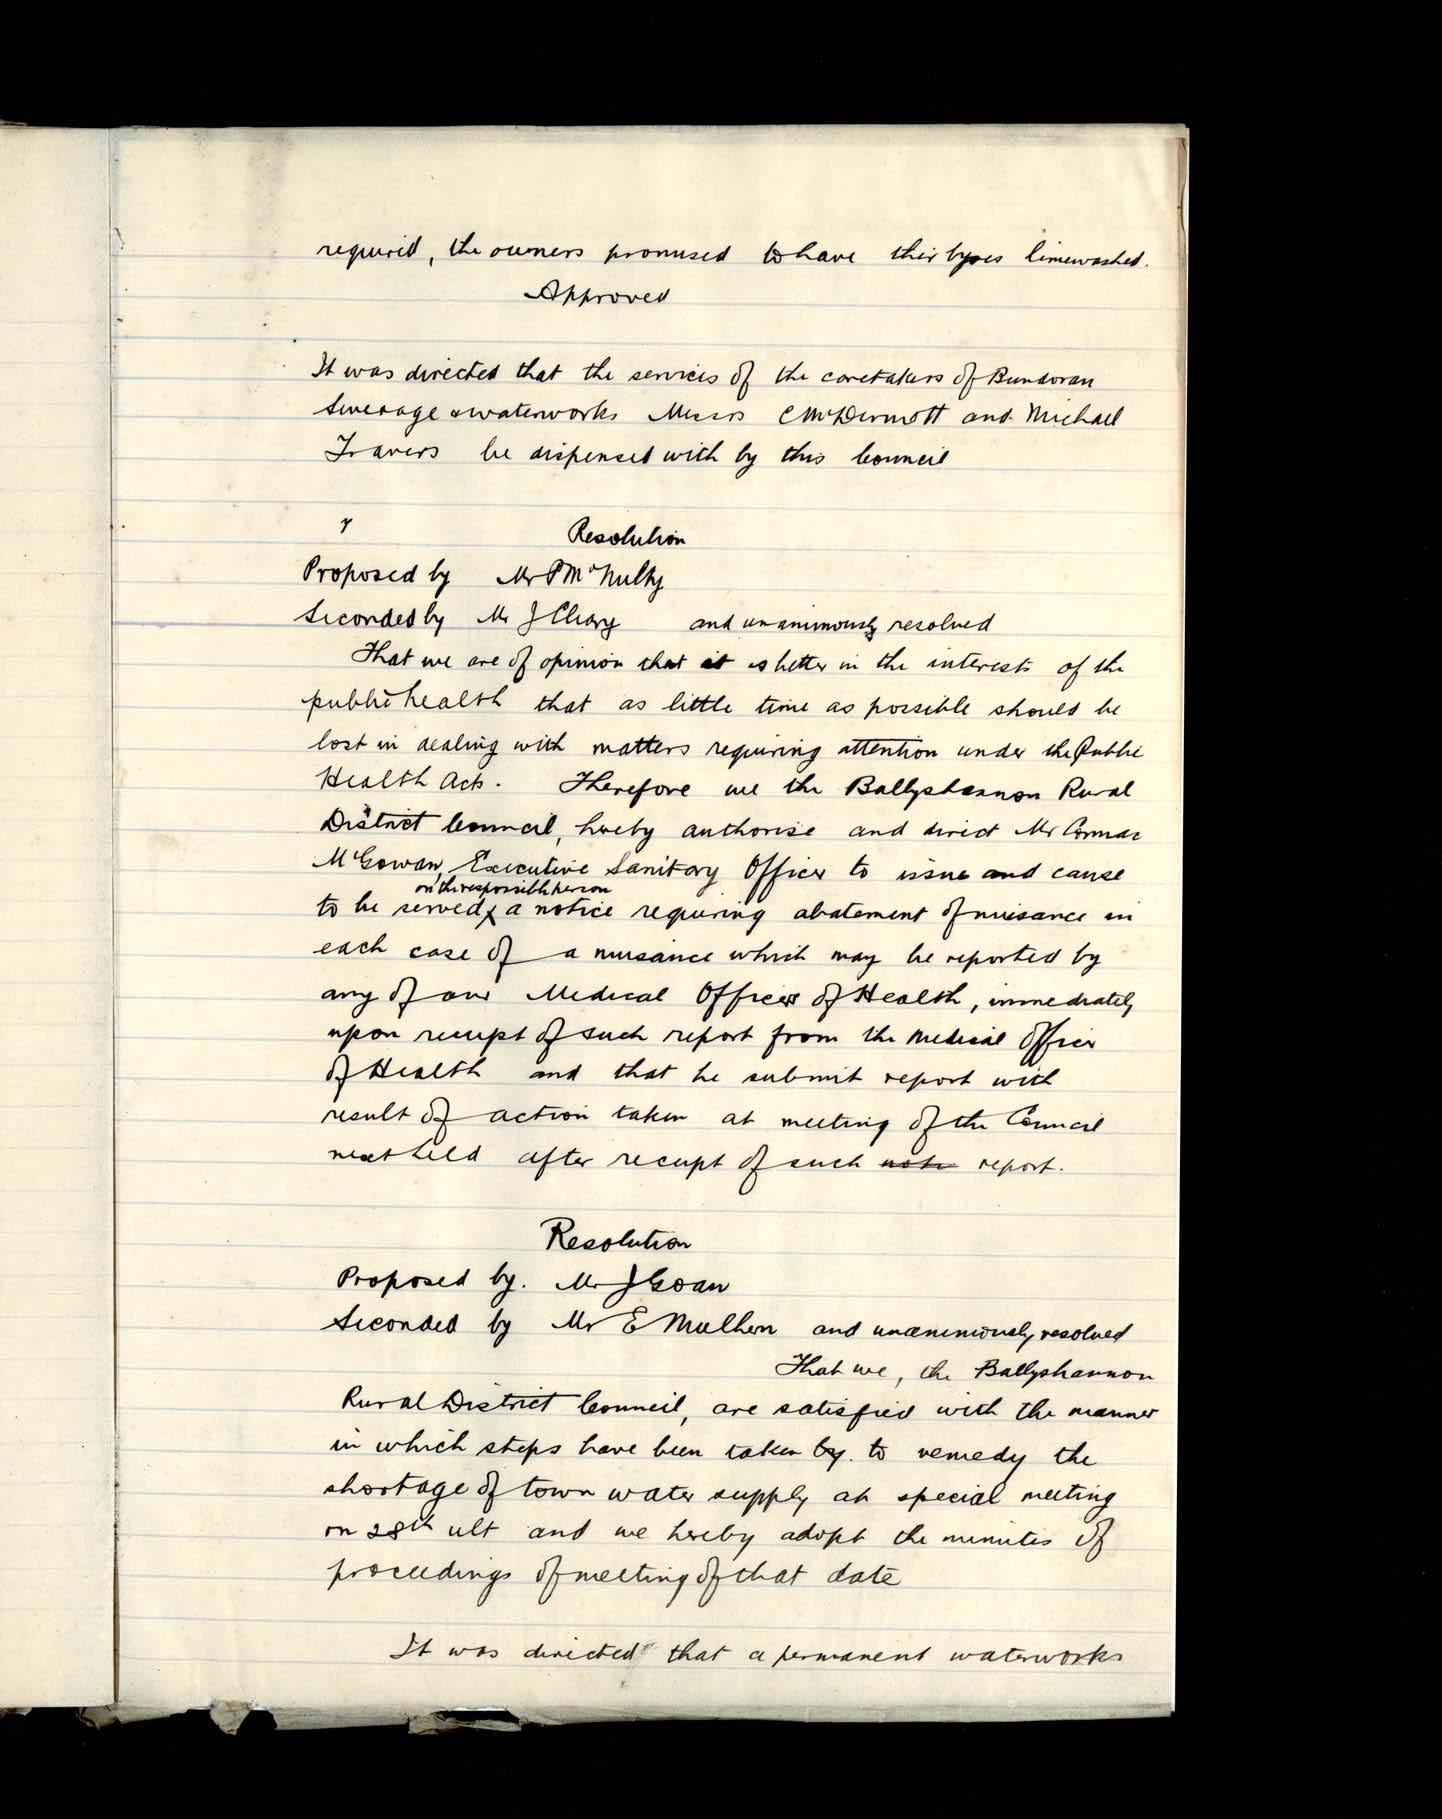 required, the owners promised to have their byres limewashed.
Approved
It was directed that the services of the caretakers of Bundoran
Sewerage & waterworks Messrs C McDermott and Michael
Travers be dispensed with by this Council
Resolution
Proposed by Mr P McNulty
Seconded by Mr J Cleary and unanimously resolved
That we are of opinion that it is better in the interests of the
public health that as little time as possible should be
lost in dealing with matters requiring attention under the Public
Health Acts. Therefore we the Ballyshannon Rural
District Council, hereby authorise and direct Mr Cormac
McGowan, Executive Sanitary Officer to issue and cause
on the responsible person
to be served a notice requiring abatement of nuisance in
each case of a nuisance which may be reported by
any of our Medical Officers of Health, immediately
upon receipt of such report from the Medical Officer
of Health and that he submit report with
result of action taken at meeting of the Council
next held after receipt of such note report.
Resolution
Proposed by. Mr J Goan
Seconded by Mr E Mulhern and unanimously resolved
That we, the Ballyshannon
Rural District Council, are satisfied with the manner
in which steps have been taken by. to remedy the
shortage of town water supply at special meeting
on 28th ult and we hereby adopt the minutes of
proceedings of meeting of that date
It was directed that a permanent waterworks